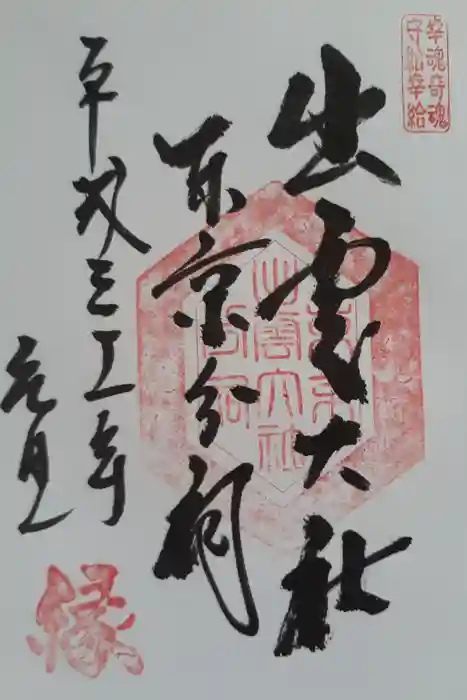 幸魂奇魂
守給幸給
出雲大社
東京分祠
平成三十一年
元旦
東京
出雲大社
分祠
縁